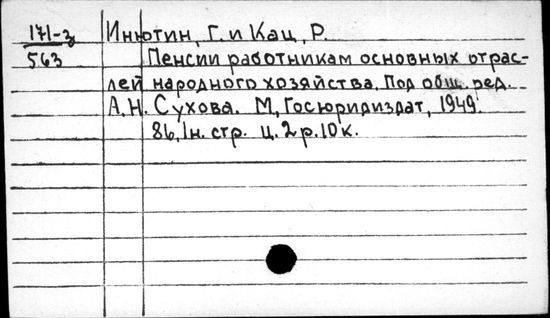 171-з Инютин, Г. и Кац, Р.
563 Пенсии работникам основных отрас-
лей народного хозяйства. Под общ. ред.
А.Н. Сухова. М, Госюридиздат, 1949.
86, 1н. стр. Ц. 2 р. 10 к.